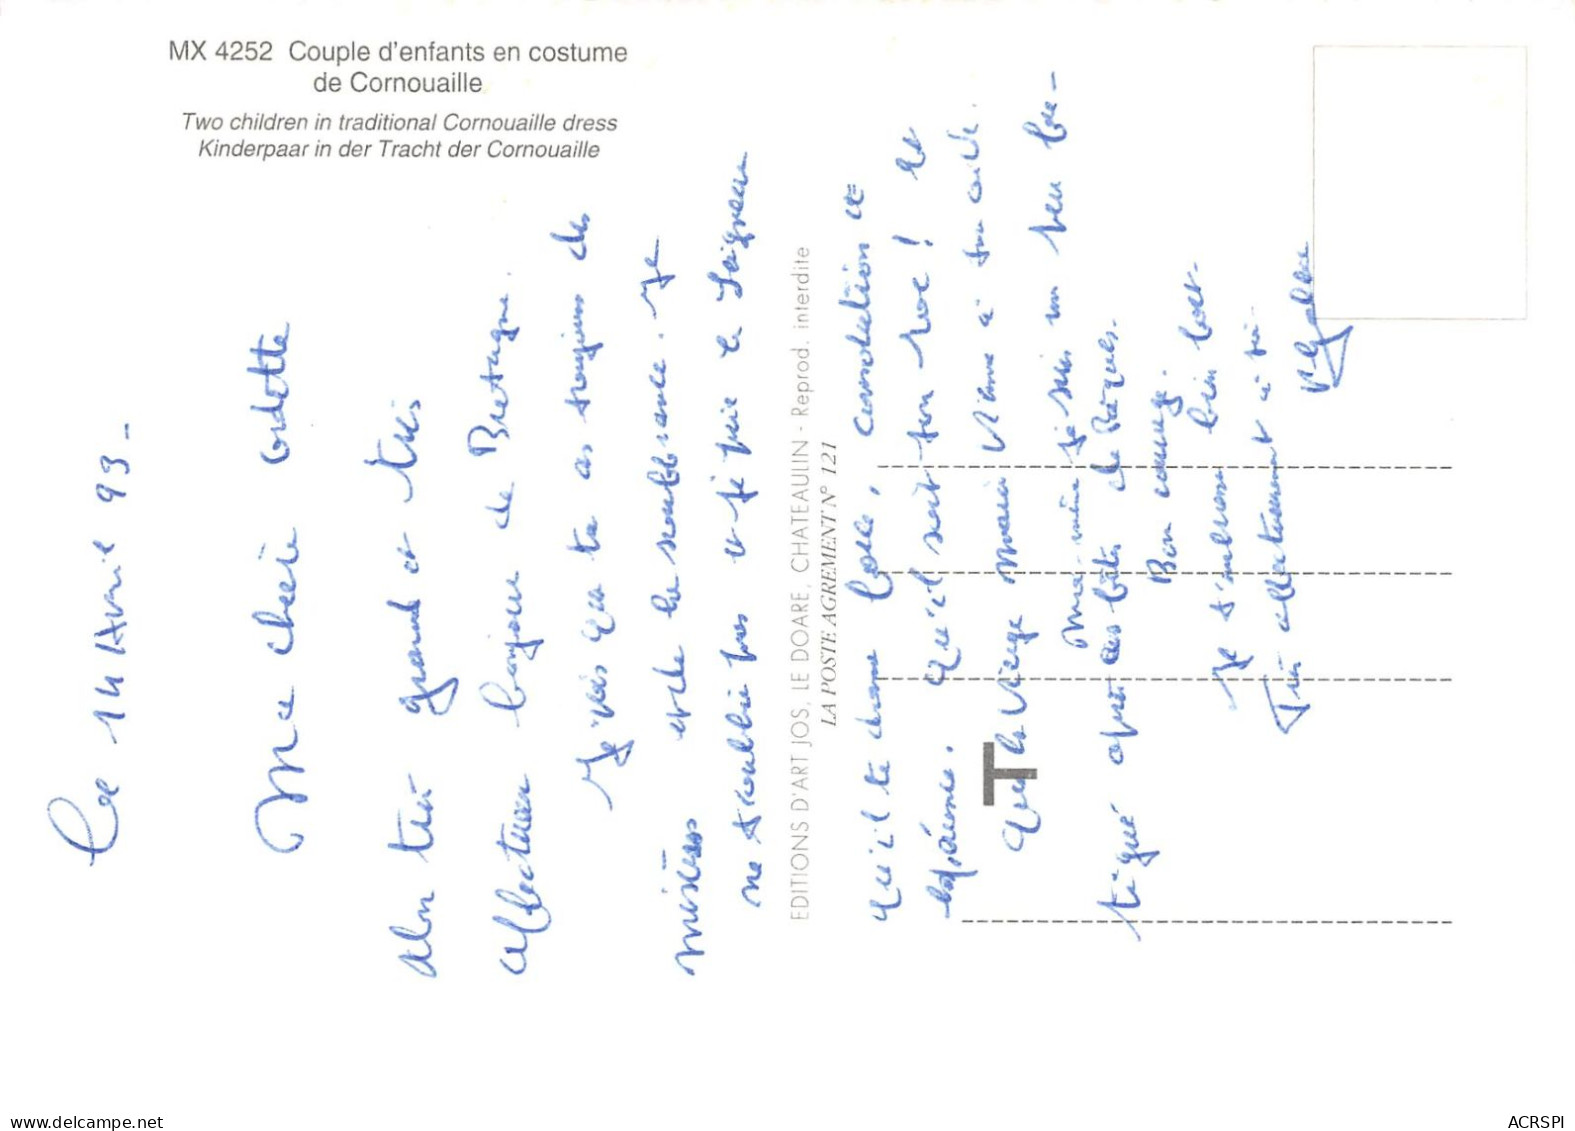 MX 4252 Couple d'enfants en costume
de Cornouaille
Two children in traditional Cornouaille dress
Kinderpaar in der Tracht der Cornouaille
EDITIONS D'ART JOS, LE DOARE, CHATEAULIN - Reprod. interdite
LA POSTE AGREMENT N° 121
T
Le 14 Avril 93 -
Ma chère Odette
Alors très grand et très
affectueux bonjour de Bretagne.
Je sais que tu as toujours des
misères et de la souffrance. Je
ne t'oublie pas et je prie le Seigneur
qu'il te donne force, consolation et
espérance. Qu'il soit ton roc! et
Que la Vierge Marie vienne à ton coté.
Moi-même je suis un peu fa-
tigué après ces fêtes de Pâques.
Bon courage.
Je t'embrasse bien fort.
Très affectueusement à toi.
www.delcampe.net
ACRSPI